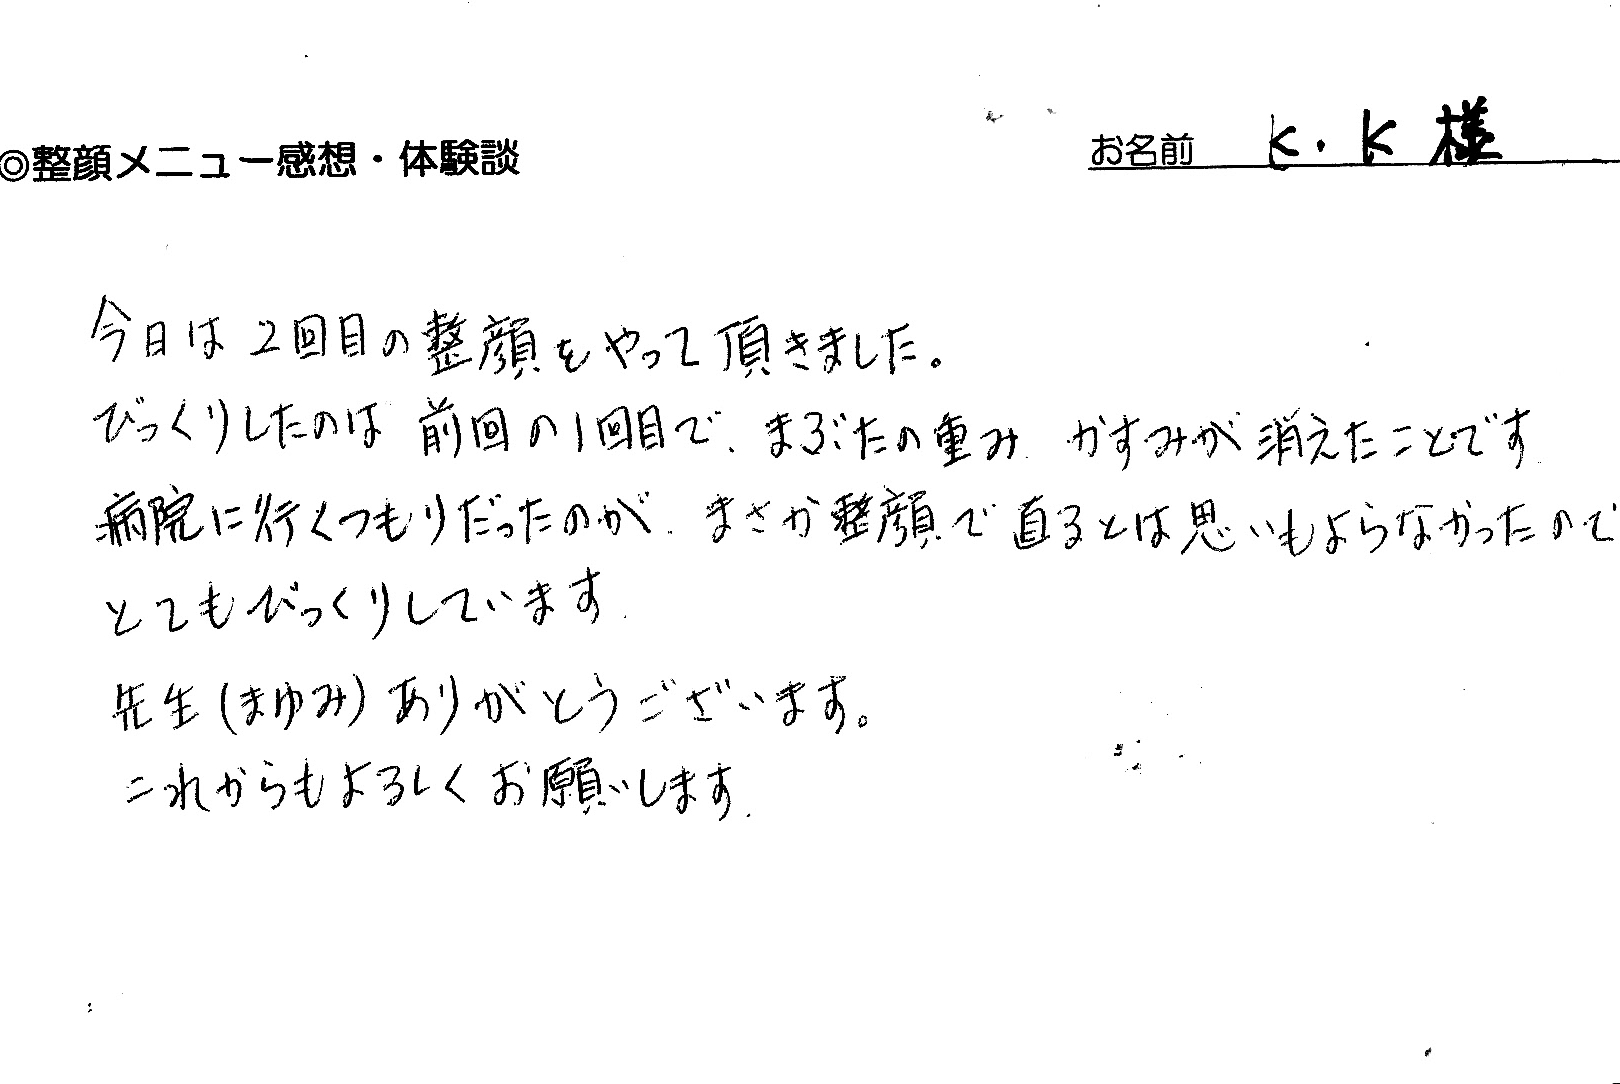 ◎整顔メニュー感想・体験談
お名前 K.K様
今日は2回目の整顔をやって頂きました。
びっくりしたのは前回の1回目で、まぶたの重み、かすみが消えたことです
病院に行くつもりだったのが、まさか整顔で直るとは思いもよらなかったので
とてもびっくりしています.
先生(まゆみ)ありがとうございます。
これからもよろしくお願いします.